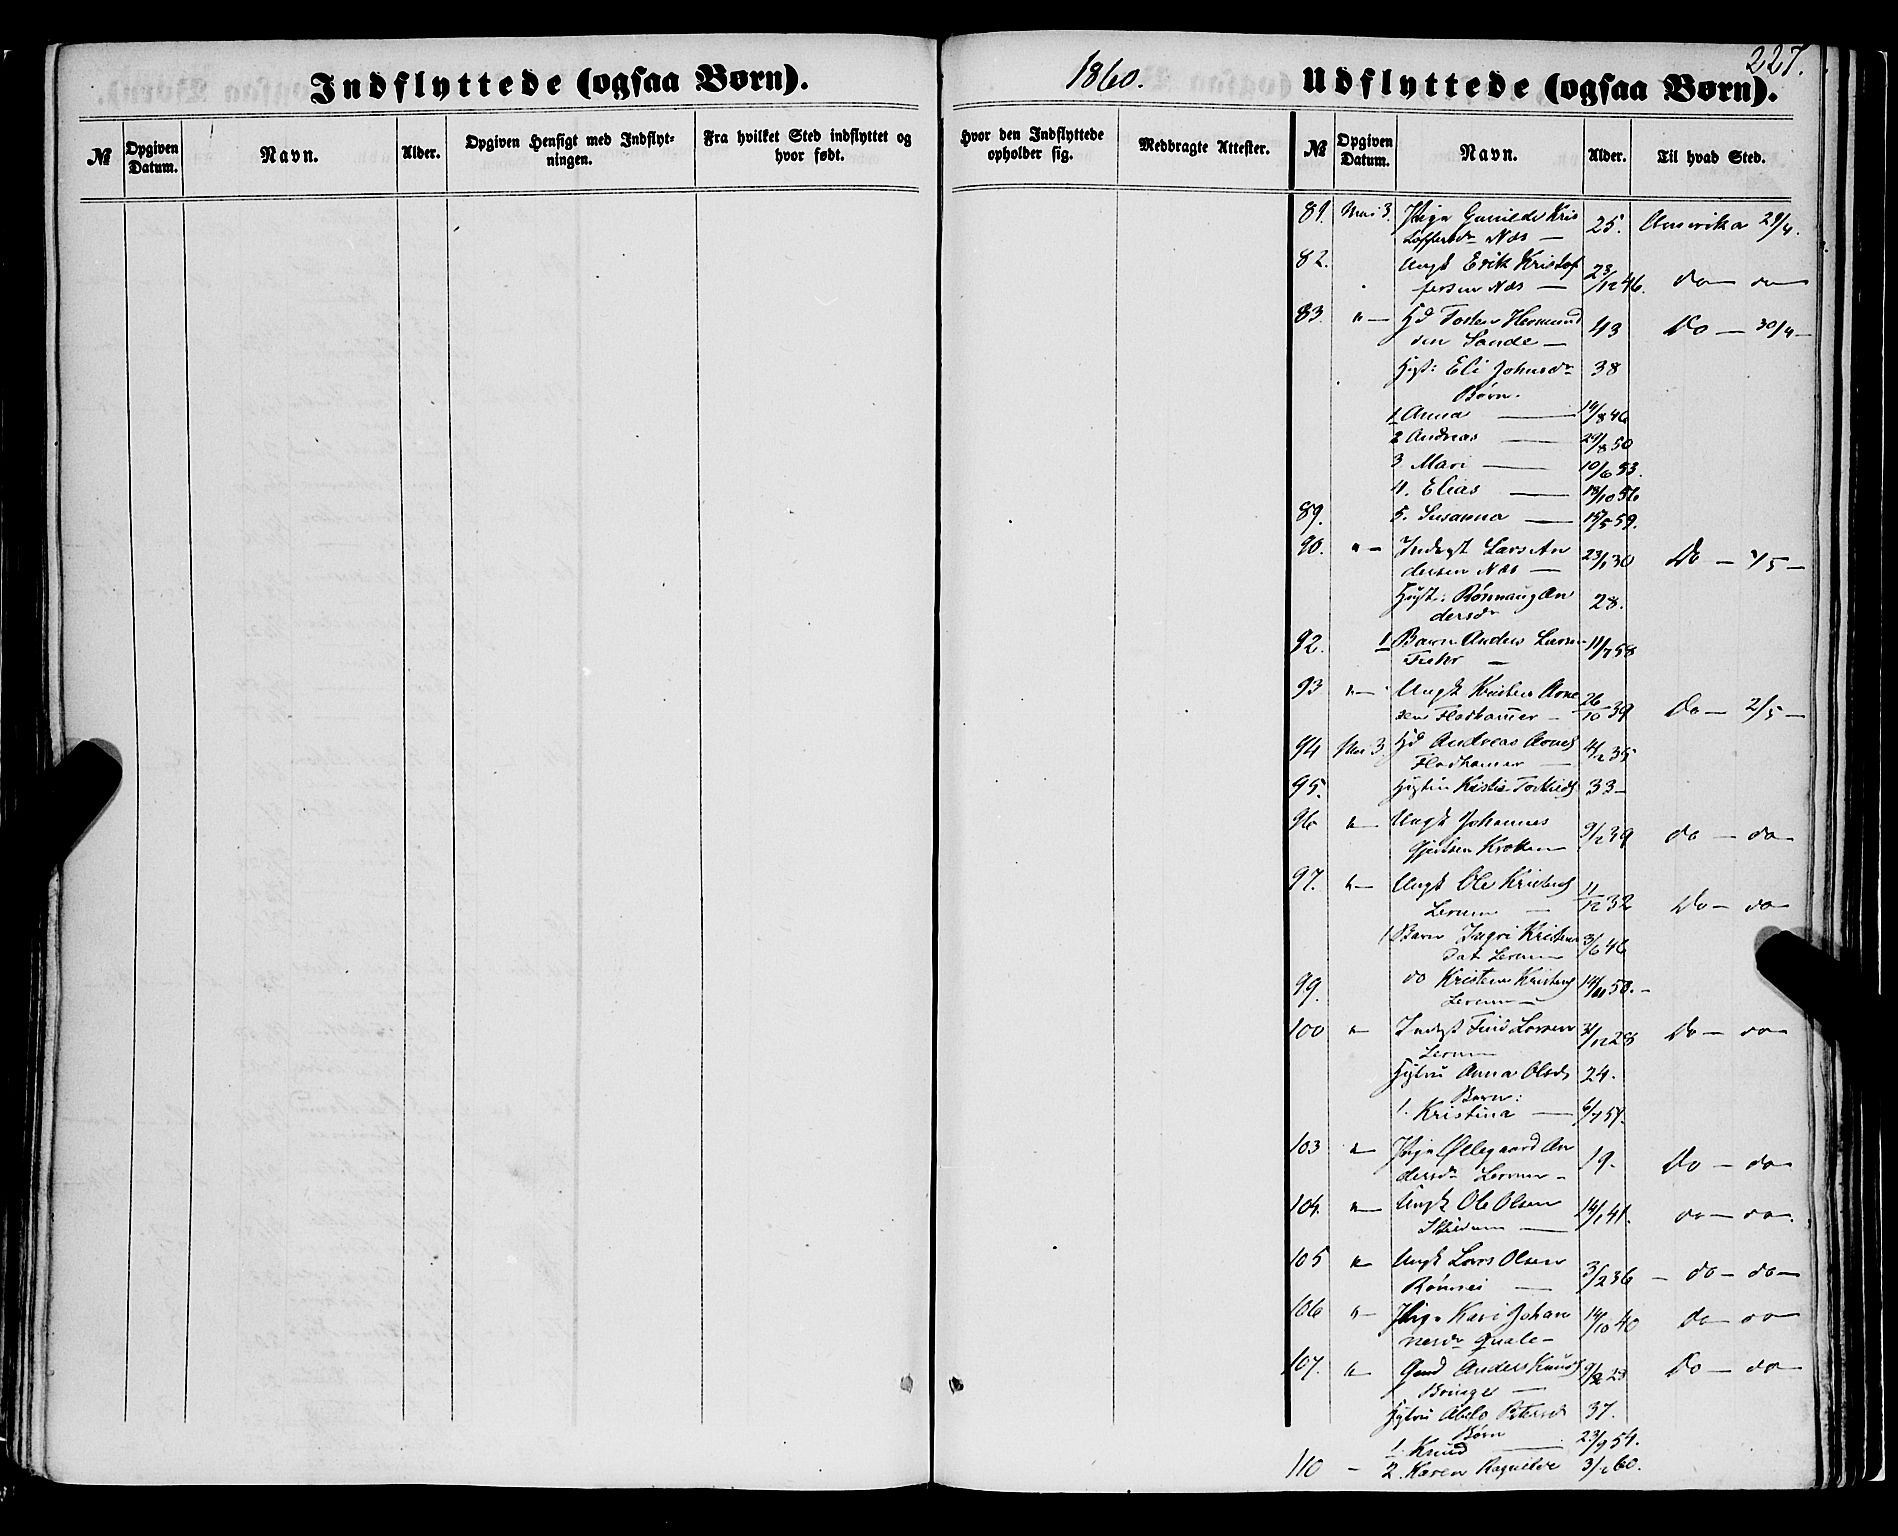 Indflyttede (ogsaa Børn).
1860.
Udflyttede (ogsaa Børn).
227.
№
Opgiven Datum.
Navn.
Alder.
Opgiven Hensigt med Indflyt-
ningen.
Fra hvilket Sted indflyttet og
hvor født.
Hvor den Indflyttede
opholder sig.
Medbragte Attester.
№
Opgiven Datum.
Navn.
Alder.
Til hvad Sted.
81. Mai 3. Pige Gunilde Kris
toffersdr Næs — 25. Amerika 29/4.
82. Ungk Erik Kristof
fersen Næs — 23/12 46. do — do —
83. " — Torsten Hermund
sen Sande — 43 Do — 30/4 —
Hust: Eli Johnsdr 38
Børn.
1 Anna — 14/8 46
2 Andreas — 29/8 50
3 Mari — 10/6 53.
4. Elias — 18/10 56
89. 5. Susanna — 15/5 59.
90. " — Indrgt Lars An
dersen Næs — 23/1 30 Do — 1/5 —
Hust: Rønnaug An
dersdr 28.
92. 1 Barn Anders Larsen
11/7 58
93 " — Ungk Kristen Arne
sen Flodhamer — 26/10 39 Do — 2/5 —
94 Mai 3 Andreas Arnes
Flodhamer — 4/2 35
95. Kristi 33 —
96 " — Ungk Johannes
Kroken 9/2 39 do — do —
97. " — Ungk Ole Kristens
Lerum — 11/12 32 Do — do —
1 Barn Ingri Kristens
dat Lerum 3/6 46
99. do Kristen Kristens
Lerum — 14/11 50. —
100 " — Indrgt Larsen
Lerum 28 Do — do —
Anna Olsdr 24.
Barn:
1. Kristina — 6/7 57.
103 " — Pige Øllegaard An
dersdr Lerum — 19. Do — do —
104. " — Ungk Ole Olsen
14/1 41. do — do —
105 " — Ungk Lars Olsen
Rønnei — 3/2 36 — do — do —
106 " — Pige Kari Johan
nesdr Quale — 14/10 40 do — do —
107. " — Gmd Anders Knuds
Bringe — 23 Do — do —
Petersdr 37.
Børn
1. Knud — 23/9 54.
110 — 2. Karen Ragnilde 3/1 60.